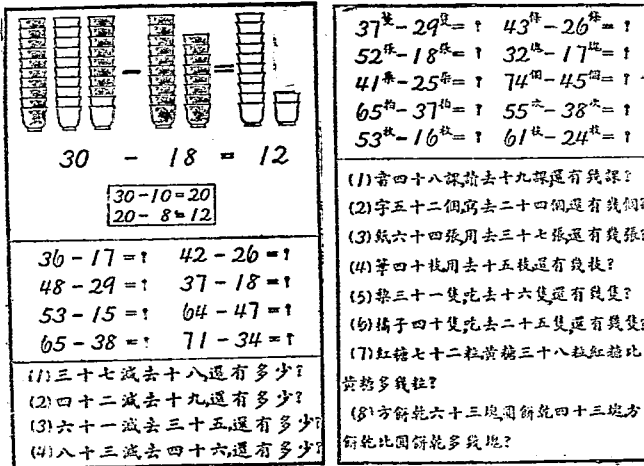 30 - 18 = 12
30-10=20
20-8=12
36-17=?  42-26=?
48-29=?  37-18=?
53-15=?  64-47=?
65-38=?  71-34=?
(1)三十七減去十八,還有多少?
(2)四十二減去十九,還有多少?
(3)六十一減去三十五,還有多少?
(4)八十三減去四十六,還有多少?
37隻-29隻=?  43條-26條=?
52張-18張=?  32塊-17塊=?
41朵-25朵=?  74個-45個=?
65 -37 =?  55次-38次=?
53枝-16枝=?  61枝-24枝=?
(1)書四十八課,讀去十九課,還有幾課?
(2)字五十二個,寫去二十四個,還有幾個
(3)紙六十四張,用去三十七張,還有幾張?
(4)筆四十枝,用去十五枝,還有幾枝?
(5)梨三十一隻,吃去十六隻,還有幾隻?
(6)橘子四十隻,吃去二十五隻,還有幾隻
(7)紅糖七十二粒,黃糖三十八粒,紅糖比
黃糖多幾粒?
(8)方餅乾六十三塊,圓餅乾四十三塊,方
餅乾比圓餅乾多幾塊?